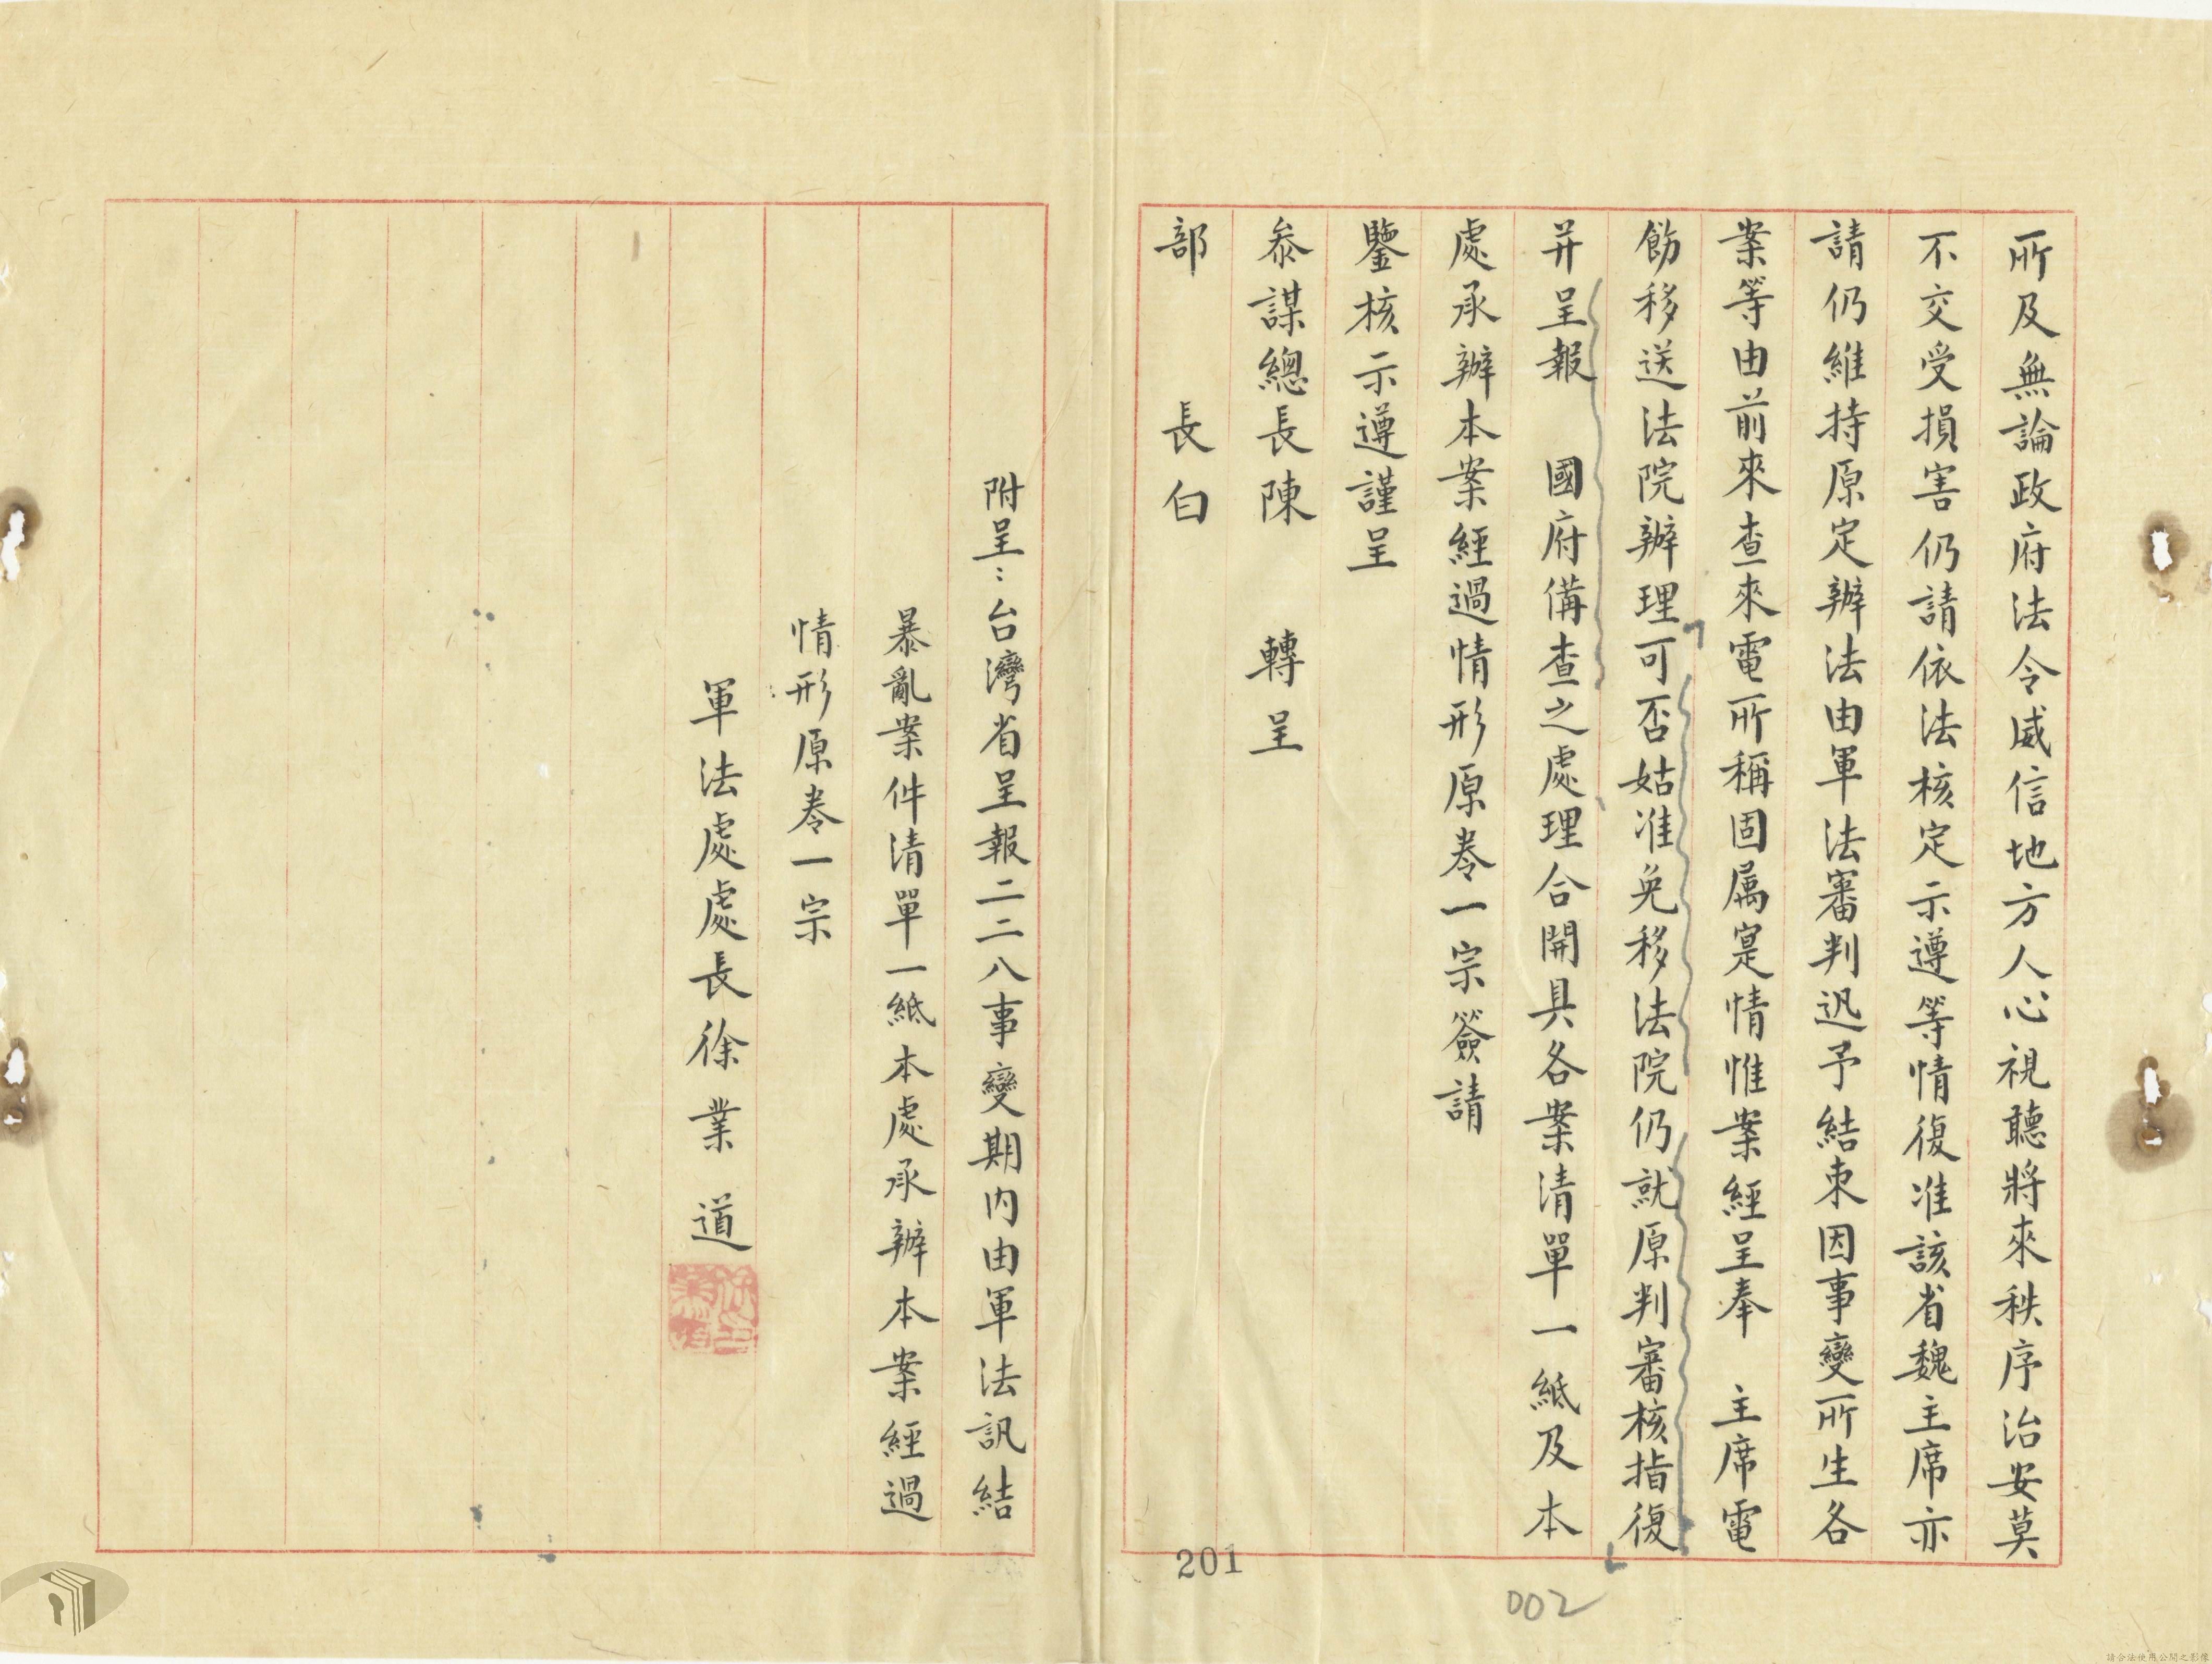 所及無論政府法令威信地方人心視聽將來秩序治安莫
不交受損害仍請依法核定示遵等情復准該省魏主席亦
請仍維持原定辦法由軍法審判迅予結束因事變所生各
案等由前來查來電所稱固属寔情惟案經呈奉　主席電
飭移送法院辦理可否姑准免移法院仍就原判審核指復
并呈報　國府備查之處理合開具各案清單一紙及本
處承辦本案經過情形原卷一宗簽請
鑒核示遵謹呈
叅謀總長陳　轉呈
部　長白
附呈：台灣省呈報二二八事變期內由軍法訊結
暴亂案件清單一紙本處承辦本案經過
情形原卷一宗
軍法處處長徐業道
201
002
請合法使用公開之影像